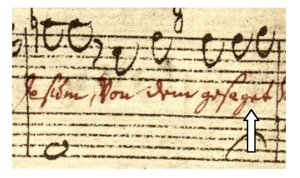 Jesum, von dem gesaget